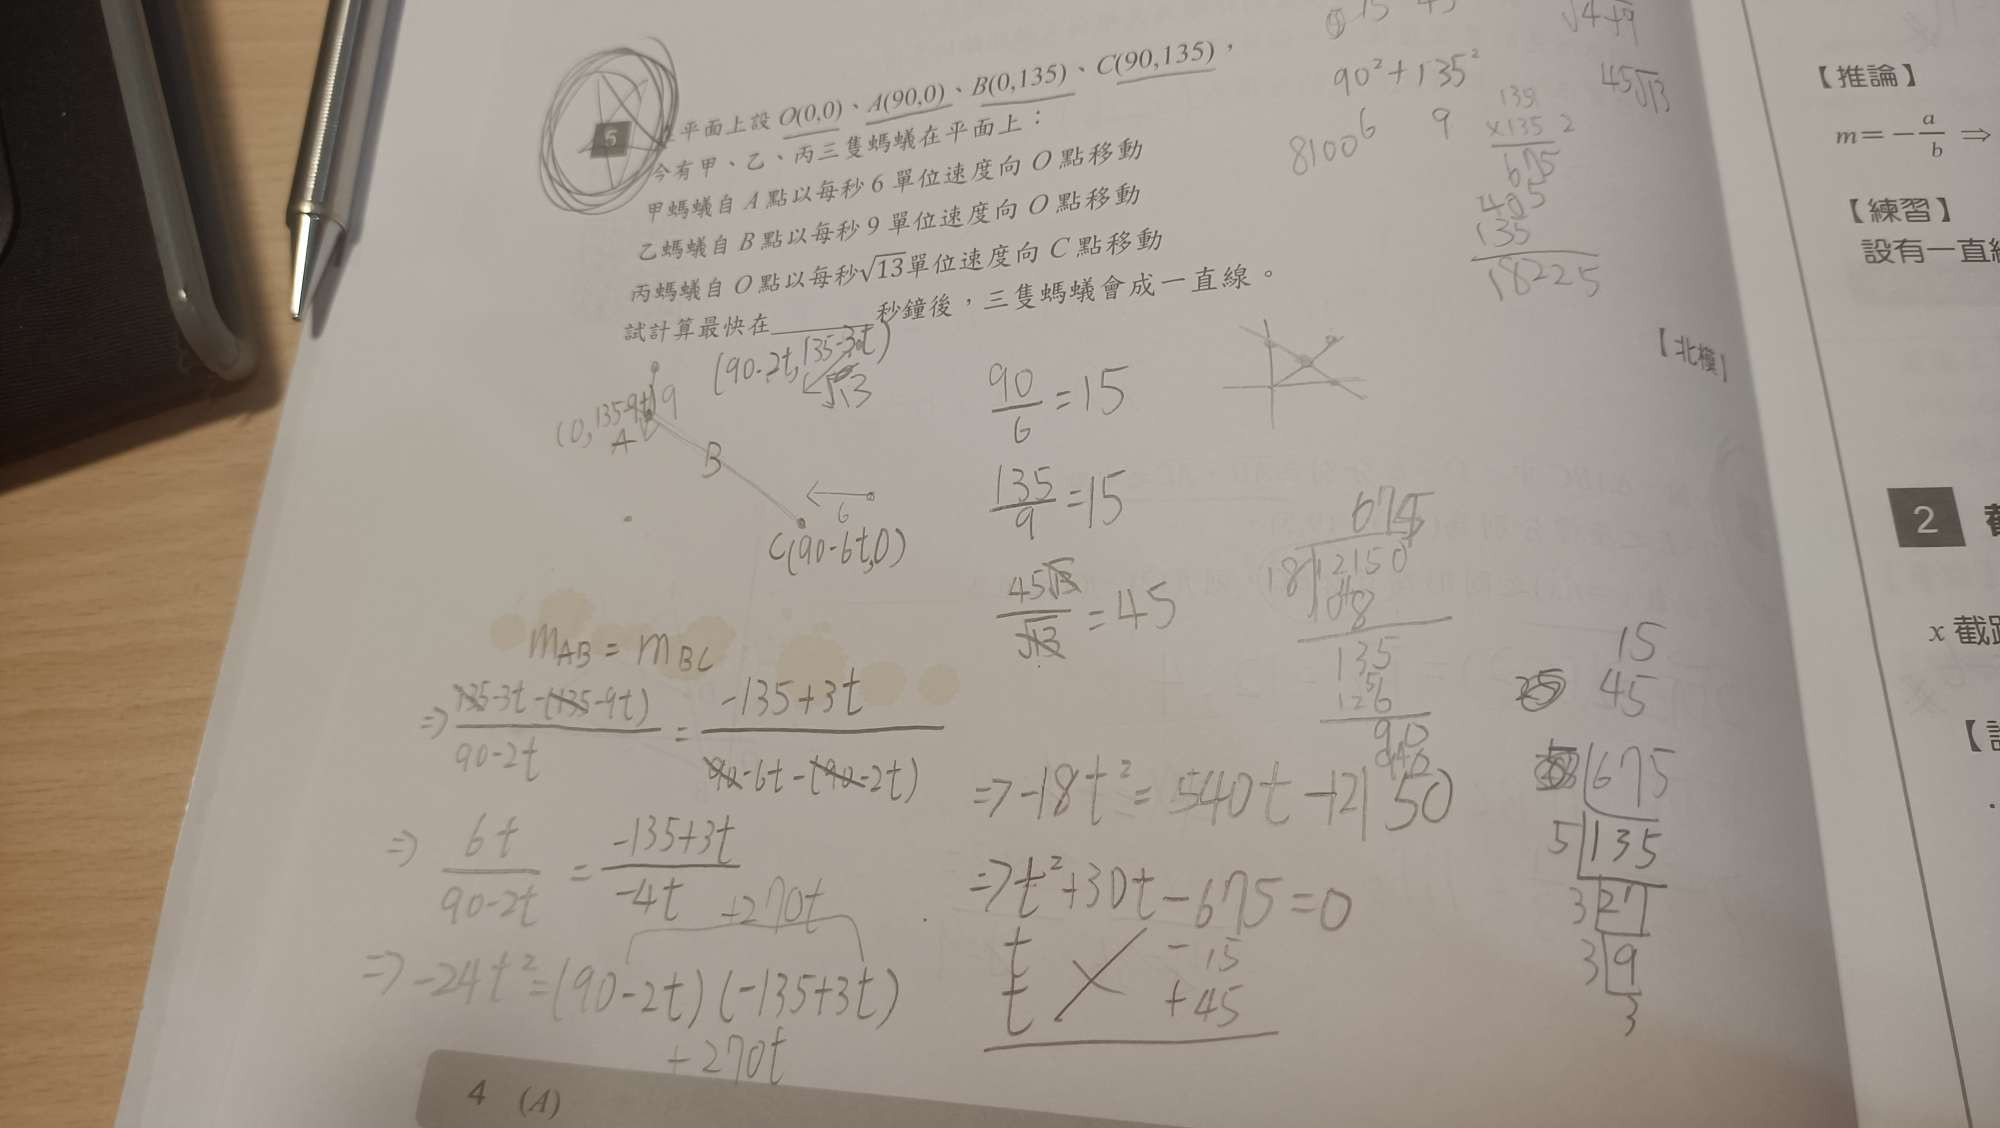 5
平面上設 O(0,0)、A(90,0)、B(0,135)、C(90,135),
今有甲、乙、丙三隻螞蟻在平面上:
甲螞蟻自 A 點以每秒 6 單位速度向 O 點移動
乙螞蟻自 B 點以每秒 9 單位速度向 O 點移動
丙螞蟻自 O 點以每秒√13單位速度向 C 點移動
試計算最快在______秒鐘後,三隻螞蟻會成一直線。
【北模】
90²+135²
8100
6
9
135
×135
2
675
405
135
18225
√4+9
45√13
(90-2t, 135-3t)
√13
(0,135-9t)
9
A
B
6
C(90-6t,0)
90/6=15
135/9=15
45√13/√13=45
m_AB = m_BC
⇒ 135-3t-(135-9t)/90-2t = -135+3t/90-6t-(90-2t)
⇒ 6t/90-2t = -135+3t/-4t
+270t
⇒ -24t²=(90-2t)(-135+3t)
+270t
⇒ -18t²=540t-12150
⇒ t²+30t-675=0
t -15
t +45
675
18 12150
108
135
126
90
90
15
45
675
5 135
3 27
3 9
3
4 (A)
【推論】
m=-a/b ⇒
【練習】
設有一直
2
x 截